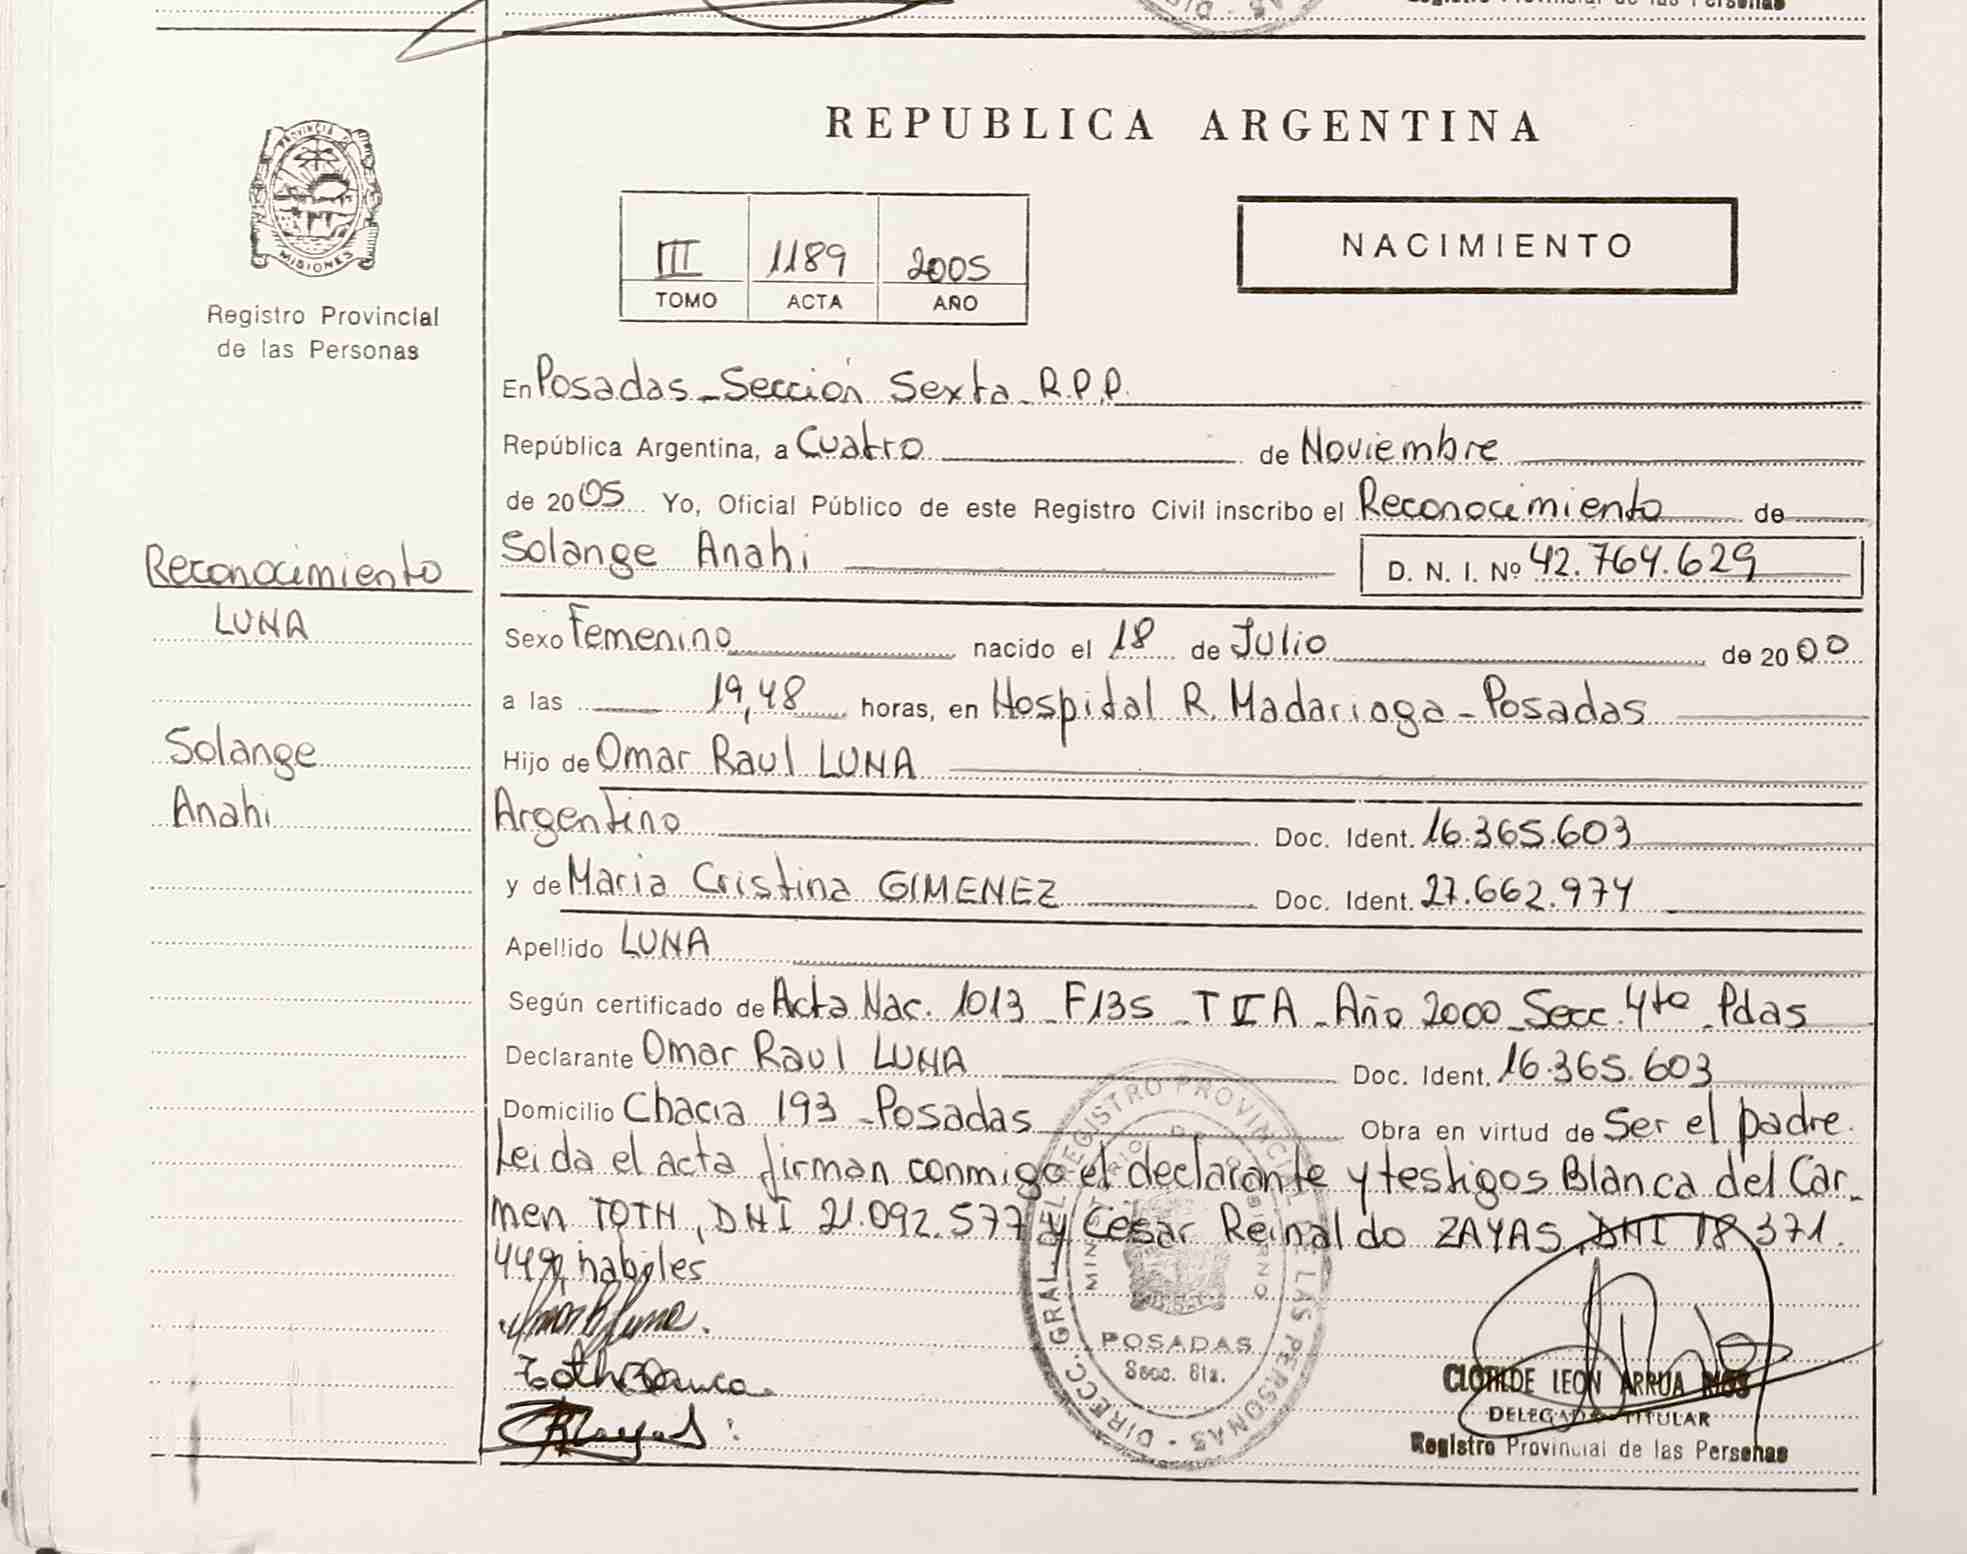 Registro Provincial de las Personas
REPUBLICA ARGENTINA
PROVINCIA DE
MISIONES
Registro Provincial
de las Personas
III 1189 2005
TOMO ACTA AÑO
NACIMIENTO
En Posadas - Sección Sexta - R.P.P.
República Argentina, a Cuatro de Noviembre
de 2005 Yo, Oficial Público de este Registro Civil inscribo el Reconocimiento de
Solange Anahi D. N. I. Nº 42.764.629
Reconocimiento
LUNA
Solange
Anahi
Sexo Femenino nacido el 18 de Julio de 2000
a las 19,48 horas, en Hospital R. Madariaga - Posadas
Hijo de Omar Raul LUNA
Argentino Doc. Ident. 16.365.603
y de Maria Cristina GIMENEZ Doc. Ident. 27.662.974
Apellido LUNA
Según certificado de Acta Nac. 1013 - F135 - T II A - Año 2000 - Secc. 4ta - Pdas
Declarante Omar Raul LUNA Doc. Ident. 16.365.603
Domicilio Chacra 193 - Posadas Obra en virtud de Ser el padre.
Leida el acta firman conmigo el declarante y testigos Blanca del Car-
men TOTH, DNI 21.092.577 y Cesar Reinaldo ZAYAS, DNI 18.371.
449, habiles
Toth Blanca
DIRECC. GRAL. DEL REGISTRO PROVINCIAL DE LAS PERSONAS
MINISTERIO DE GOBIERNO
POSADAS
Secc. 6ta.
CLOTILDE LEON ARRUA RIOS
DELEGADO TITULAR
Registro Provincial de las Personas